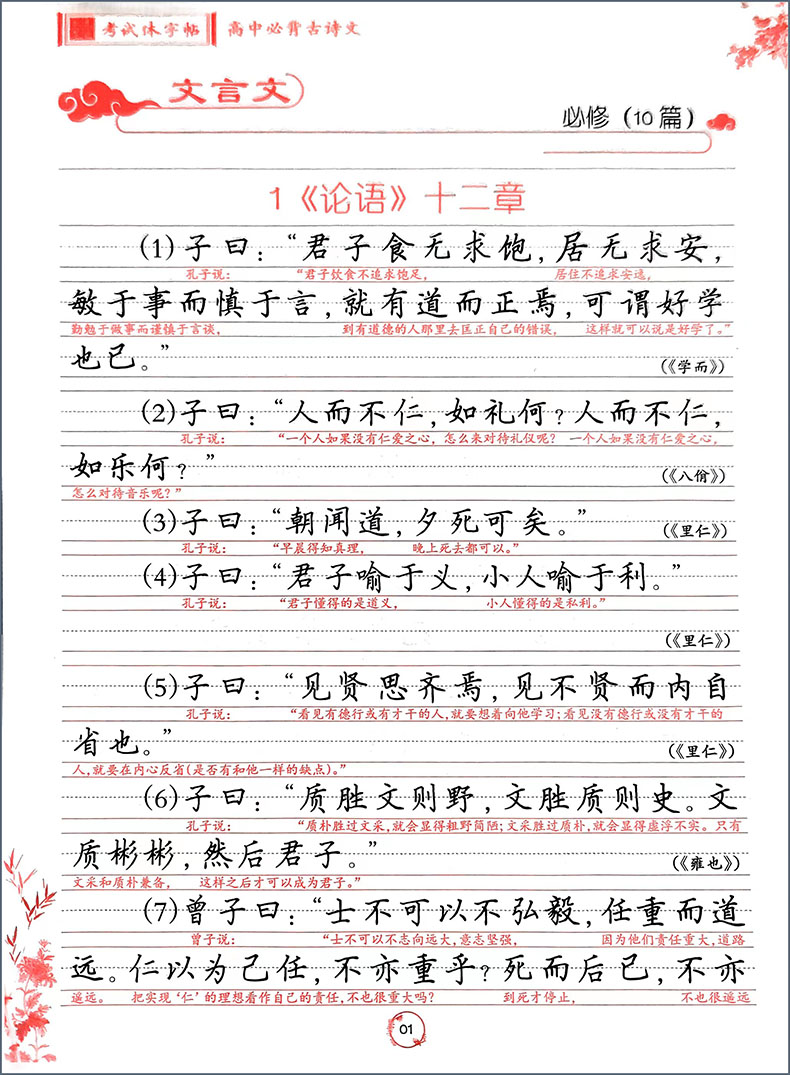 考试体字帖 高中必背古诗文
文言文
必修（10篇）
1《论语》十二章
(1)子曰：“君子食无求饱，居无求安，
孔子说： “君子饮食不追求饱足， 居住不追求安逸，
敏于事而慎于言，就有道而正焉，可谓好学
勤勉于做事而谨慎于言谈， 到有道德的人那里去匡正自己的错误， 这样就可以说是好学了。”
也已。” （《学而》）
(2)子曰：“人而不仁，如礼何？人而不仁，
孔子说： “一个人如果没有仁爱之心，怎么来对待礼仪呢？ 一个人如果没有仁爱之心，
如乐何？” （《八佾》）
怎么对待音乐呢？”
(3)子曰：“朝闻道，夕死可矣。” （《里仁》）
孔子说： “早晨得知真理， 晚上死去都可以。”
(4)子曰：“君子喻于义，小人喻于利。”
孔子说： “君子懂得的是道义， 小人懂得的是私利。”
（《里仁》）
(5)子曰：“见贤思齐焉，见不贤而内自
孔子说： “看见有德行或有才干的人，就要想着向他学习；看见没有德行或没有才干的
省也。” （《里仁》）
人，就要在内心反省（是否有和他一样的缺点）。”
(6)子曰：“质胜文则野，文胜质则史。文
孔子说： “质朴胜过文采，就会显得粗野简陋；文采胜过质朴，就会显得虚浮不实。只有
质彬彬，然后君子。” （《雍也》）
文采和质朴兼备， 这样之后才可以成为君子。”
(7)曾子曰：“士不可以不弘毅，任重而道
曾子说： “士不可以不志向远大，意志坚强， 因为他们责任重大，道路
远。仁以为己任，不亦重乎？死而后已，不亦
遥远。 把实现‘仁’的理想看作自己的责任，不也很重大吗？ 到死才停止， 不也很遥远
01